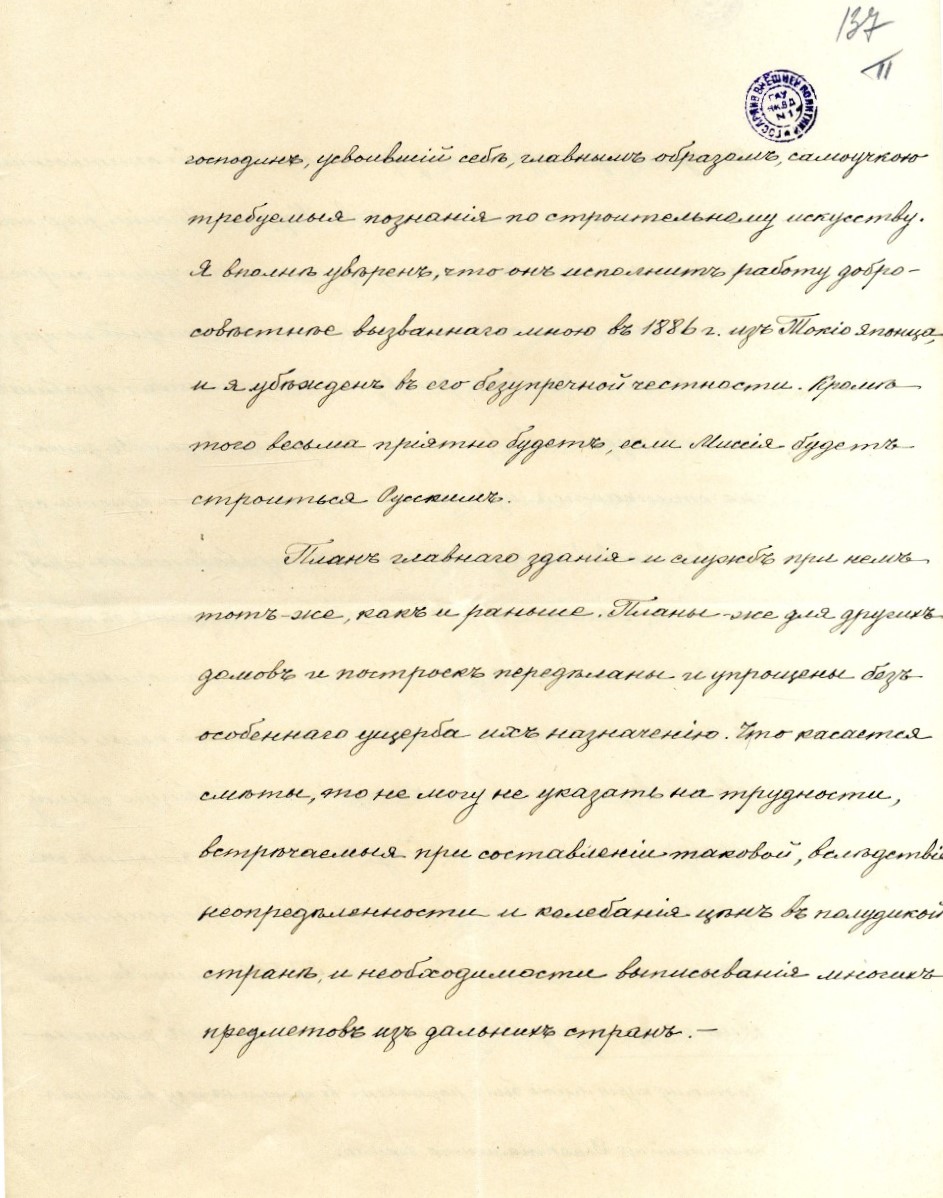 137
II
ГОС. АРХИВ ВНЕШНЕЙ ПОЛИТИКИ
ГАУ
НКВД
N 1
господинъ, усвоившій себѣ, главнымъ образомъ, самоучкою
требуемыя познанія по строительному искусству.
Я вполнѣ увѣренъ, что онъ исполнитъ работу добро-
совѣстнѣе вызваннаго мною въ 1886 г. изъ Токіо японца,
и я убѣжденъ въ его безупречной честности. Кромѣ
того весьма пріятно будетъ, если Миссія будетъ
строиться Русскимъ.
Планъ главнаго зданія и службъ при немъ
тотъ-же, какъ и раньше. Планы-же для другихъ
домовъ и построекъ передѣланы и упрощены безъ
особеннаго ущерба ихъ назначенію. Что касается
смѣты, то не могу не указать на трудности,
встрѣчаемыя при составленіи таковой, вслѣдствіе
неопредѣленности и колебанія цѣнъ въ полудикой
странѣ, и необходимости выписыванія многихъ
предметовъ изъ дальнихъ странъ. —